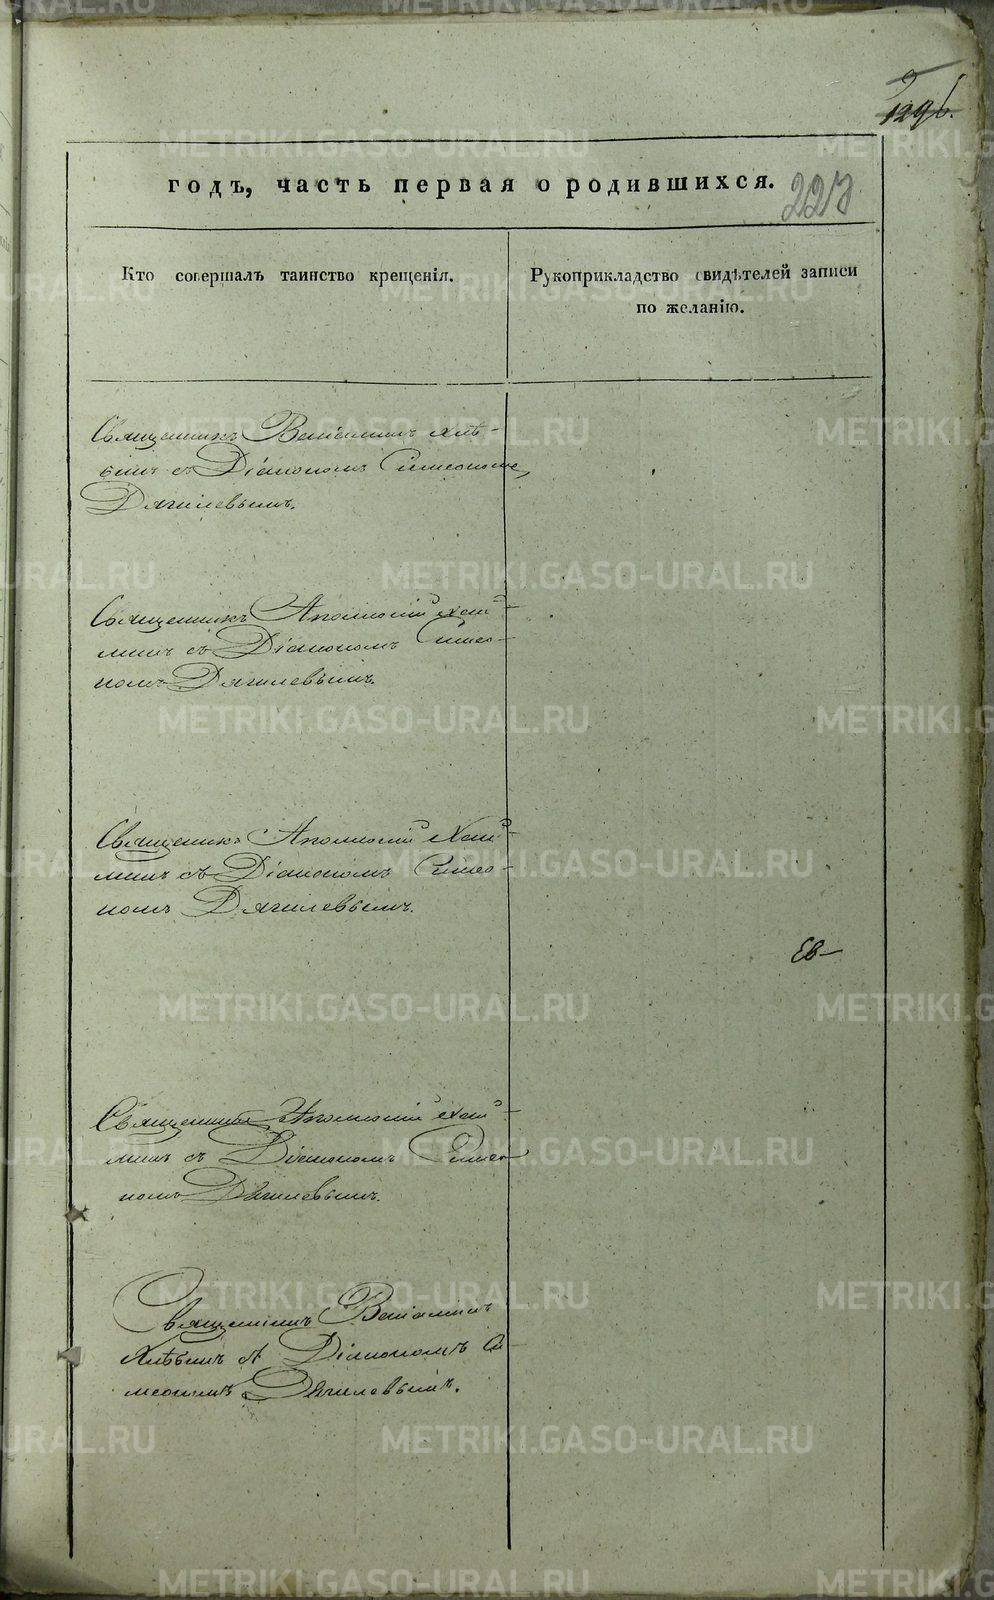 1296.
годъ, часть первая о родившихся.
227
Кто совершалъ таинство крещенія.
Рукоприкладство свидѣтелей записи
по желанію.
Священникъ Веніаминъ Хлѣ-
бинъ съ Діакономъ Симеономъ
Дягилевымъ.
Священникъ Аполлосій
съ Діакономъ Симео-
номъ Дягилевымъ.
Священникъ Аполлосій
съ Діакономъ Симео-
номъ Дягилевымъ.
Ев-
Священникъ Аполлосій
съ Діакономъ Симео
номъ Дягилевымъ.
Священникъ Веніаминъ
Хлѣбинъ съ Діакономъ Си
меономъ Дягилевымъ.
METRIKI.GASO-URAL.RU